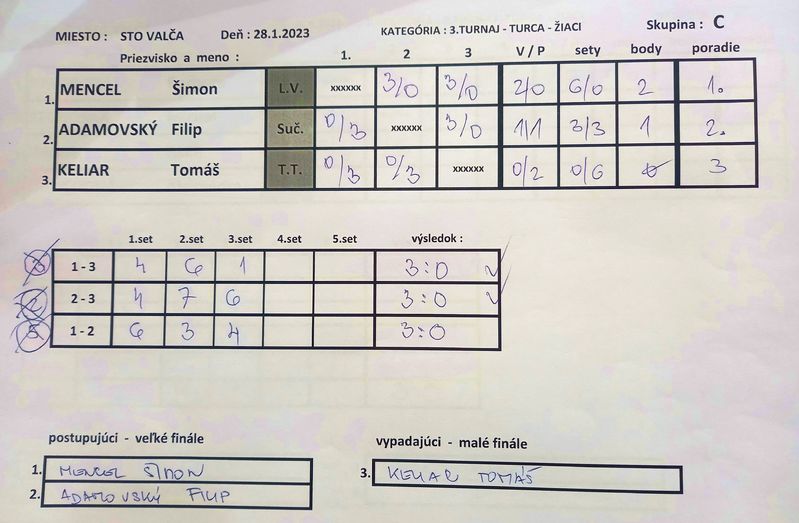 MIESTO : STO VALČA Deň : 28.1.2023 KATEGÓRIA : 3.TURNAJ - TURCA - ŽIACI Skupina : C
Priezvisko a meno : 1. 2 3 V / P sety body poradie
1. MENCEL Šimon L.V. xxxxxx 3/0 3/0 2/0 6/0 2 1.
2. ADAMOVSKÝ Filip Suč. 0/3 xxxxxx 3/0 1/1 3/3 1 2.
3. KELIAR Tomáš T.T. 0/3 0/3 xxxxxx 0/2 0/6 0 3
1.set 2.set 3.set 4.set 5.set výsledok :
1 - 3 4 6 1 3:0
2 - 3 4 7 6 3:0
1 - 2 6 3 4 3:0
postupujúci - veľké finále
vypadajúci - malé finále
1. MENCEL ŠIMON
2. ADAMOVSKÝ FILIP
3. KELIAR TOMÁŠ